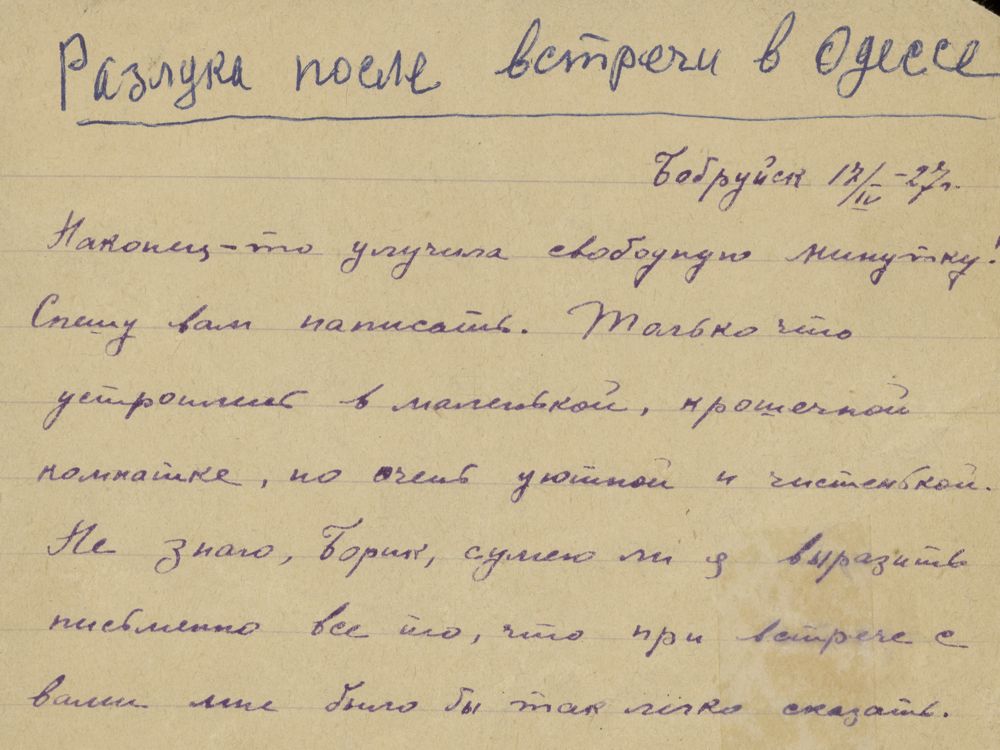 Разлука после встречи в Одессе
Бобруйск 17/IV-27г.
Наконец-то улучила свободную минутку!
Спешу вам написать. Только что
устроились в маленькой, крошечной
комнатке, но очень уютной и чистенькой.
Не знаю, Борик, сумею ли я выразить
письменно все то, что при встрече с
вами мне было бы так легко сказать.